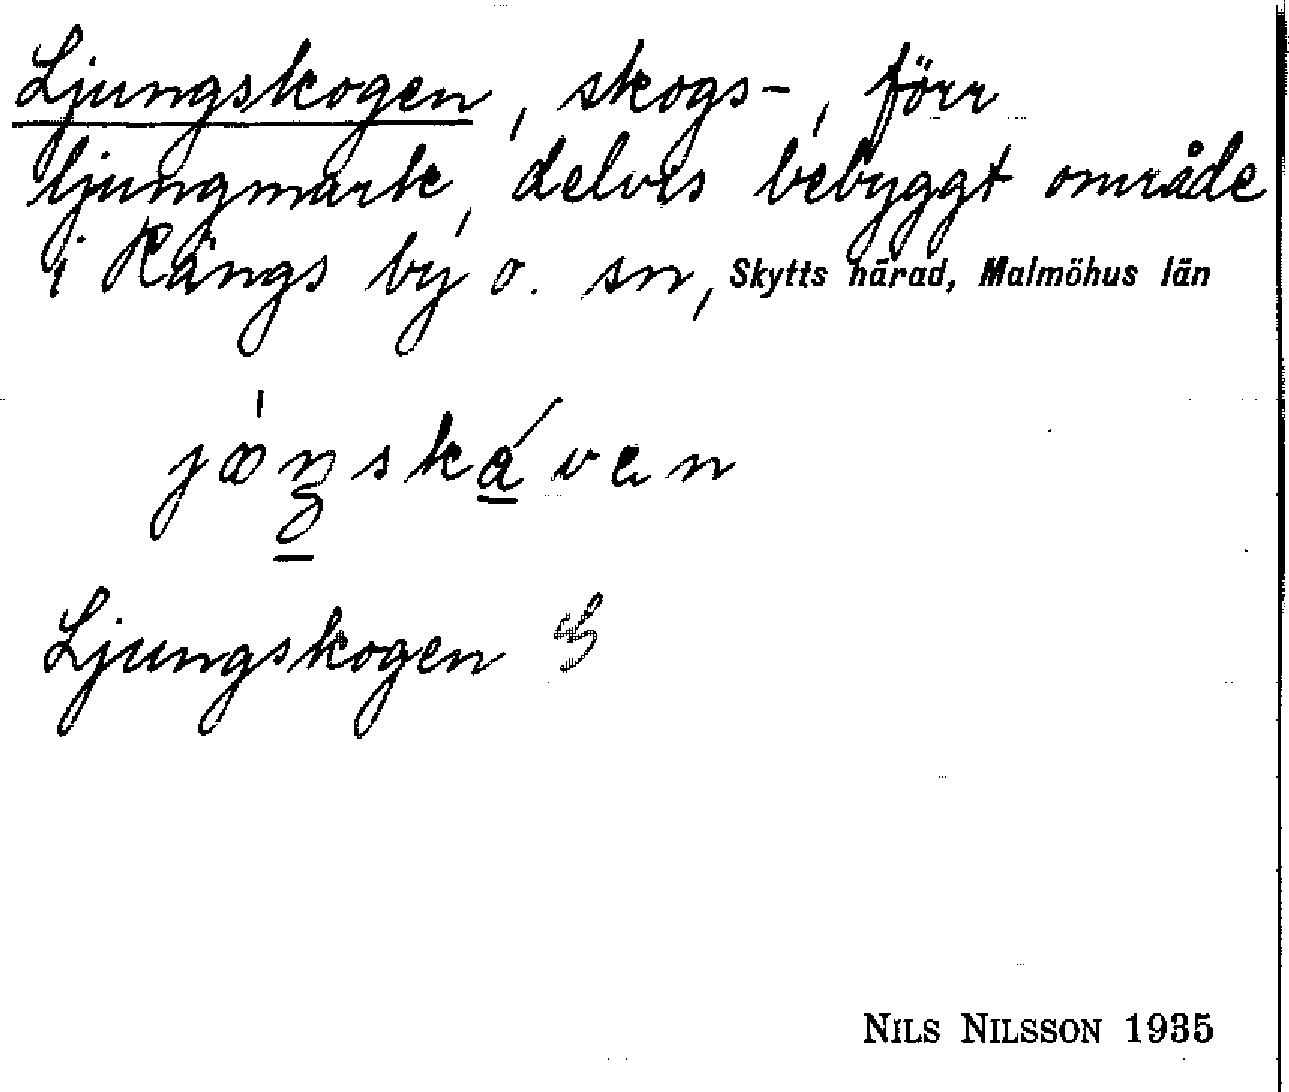 Ljungskogen, skogs-, förr
ljungmark, delvis bebyggt område
i Rängs by o. sn, Skytts härad, Malmöhus län
Ljungskogen
NILS NILSSON 1935